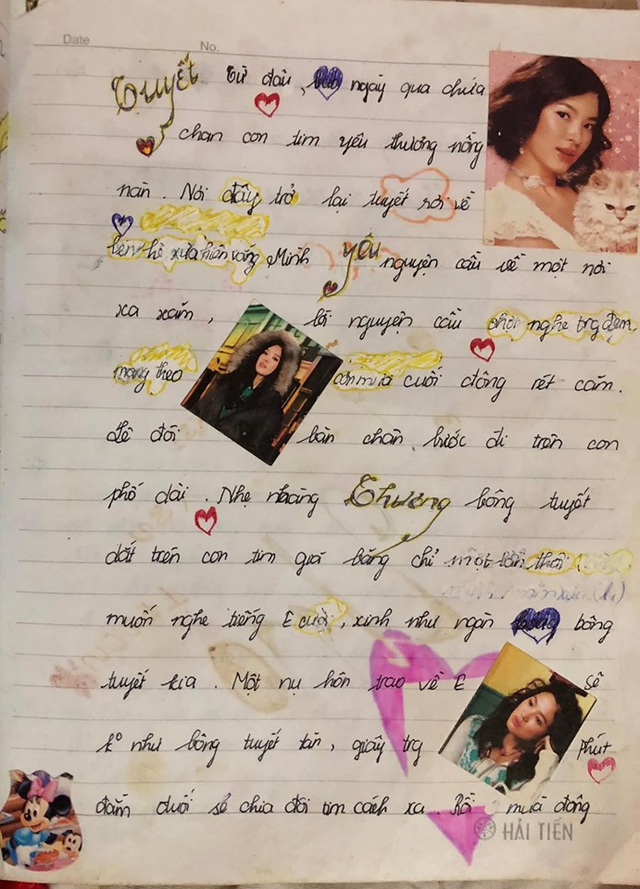 Date
No.
Tuyết Từ đâu, ngày qua chứa
chan con tim yêu thương nồng
nàn. Nơi đây trở lại tuyết rơi về
bên hè xưa hiên vắng Mình yêu nguyện cầu về một nơi
xa xăm, lời nguyện cầu chợt nghe trg đêm
mang theo cơn mưa cuối đông rét căm.
Lê đôi bàn chân bước đi trên con
phố dài. Nhẹ nhàng Thương bông tuyết
dắt trên con tim giá băng chỉ một lần thôi
muốn nghe tiếng E cười, xinh như ngàn bông
tuyết kia. Một nụ hôn trao về E sẽ
ko như bông tuyết tàn, giây trg phút
đắm đuối sẽ chia đôi tim cách xa. Rồi mùa đông
HẢI TIẾN